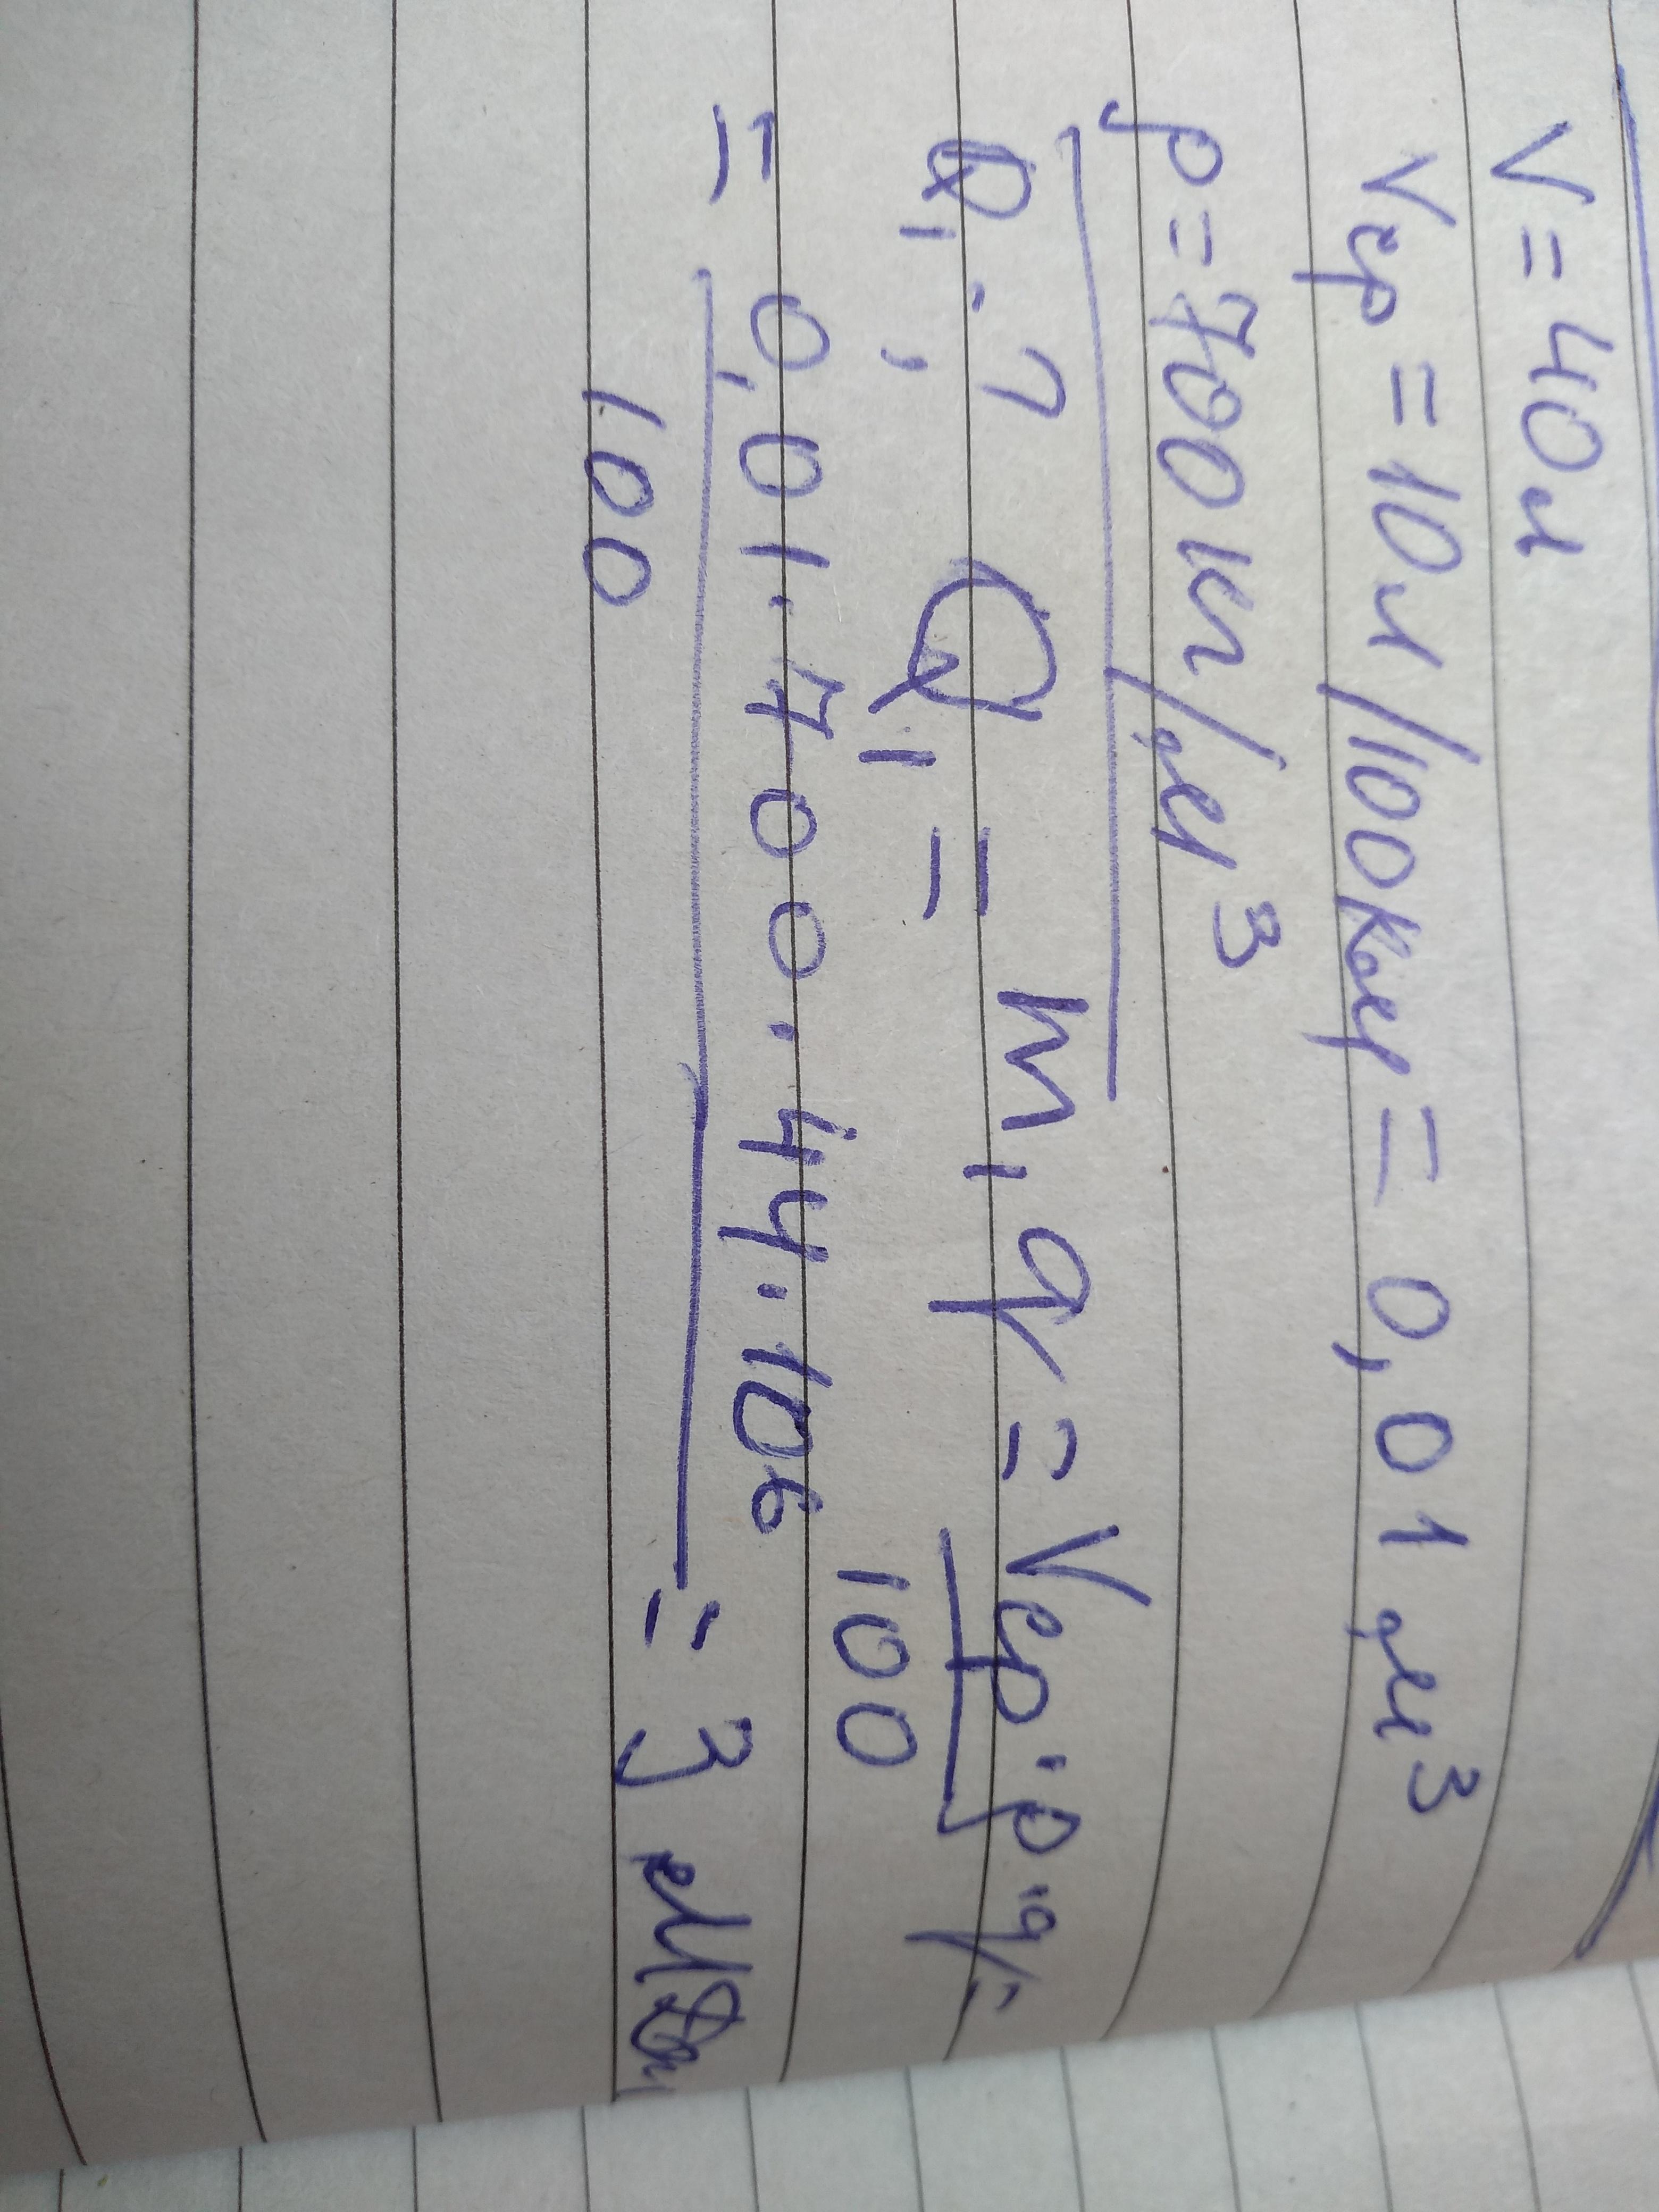 V = 40л
Vср = 10л/100км = 0,01 м³
ρ = 700 кг/м³
Q₁ - ?
Q₁ = m₁q = Vср·ρ·q/100 =
= 0,01·700·44·10⁶/100 = 3 МДж